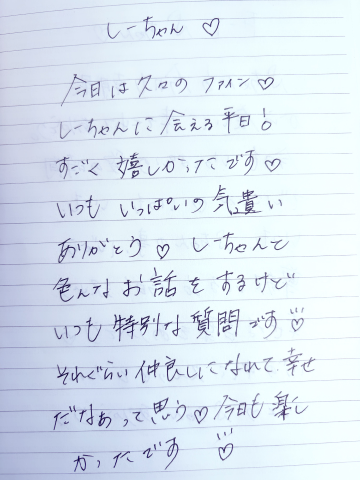 しーちゃん ♡
今日は久々の ファイン♡
しーちゃんに 会える 平日!
すごく 嬉しかったです♡
いつも いっぱいの 気遣い
ありがとう♡ しーちゃんと
色んな お話を するけど
いつも 特別な 質問です
それぐらい 仲良しになれて 幸せ
だなぁって 思う♡ 今日も 楽し
かったです ♡